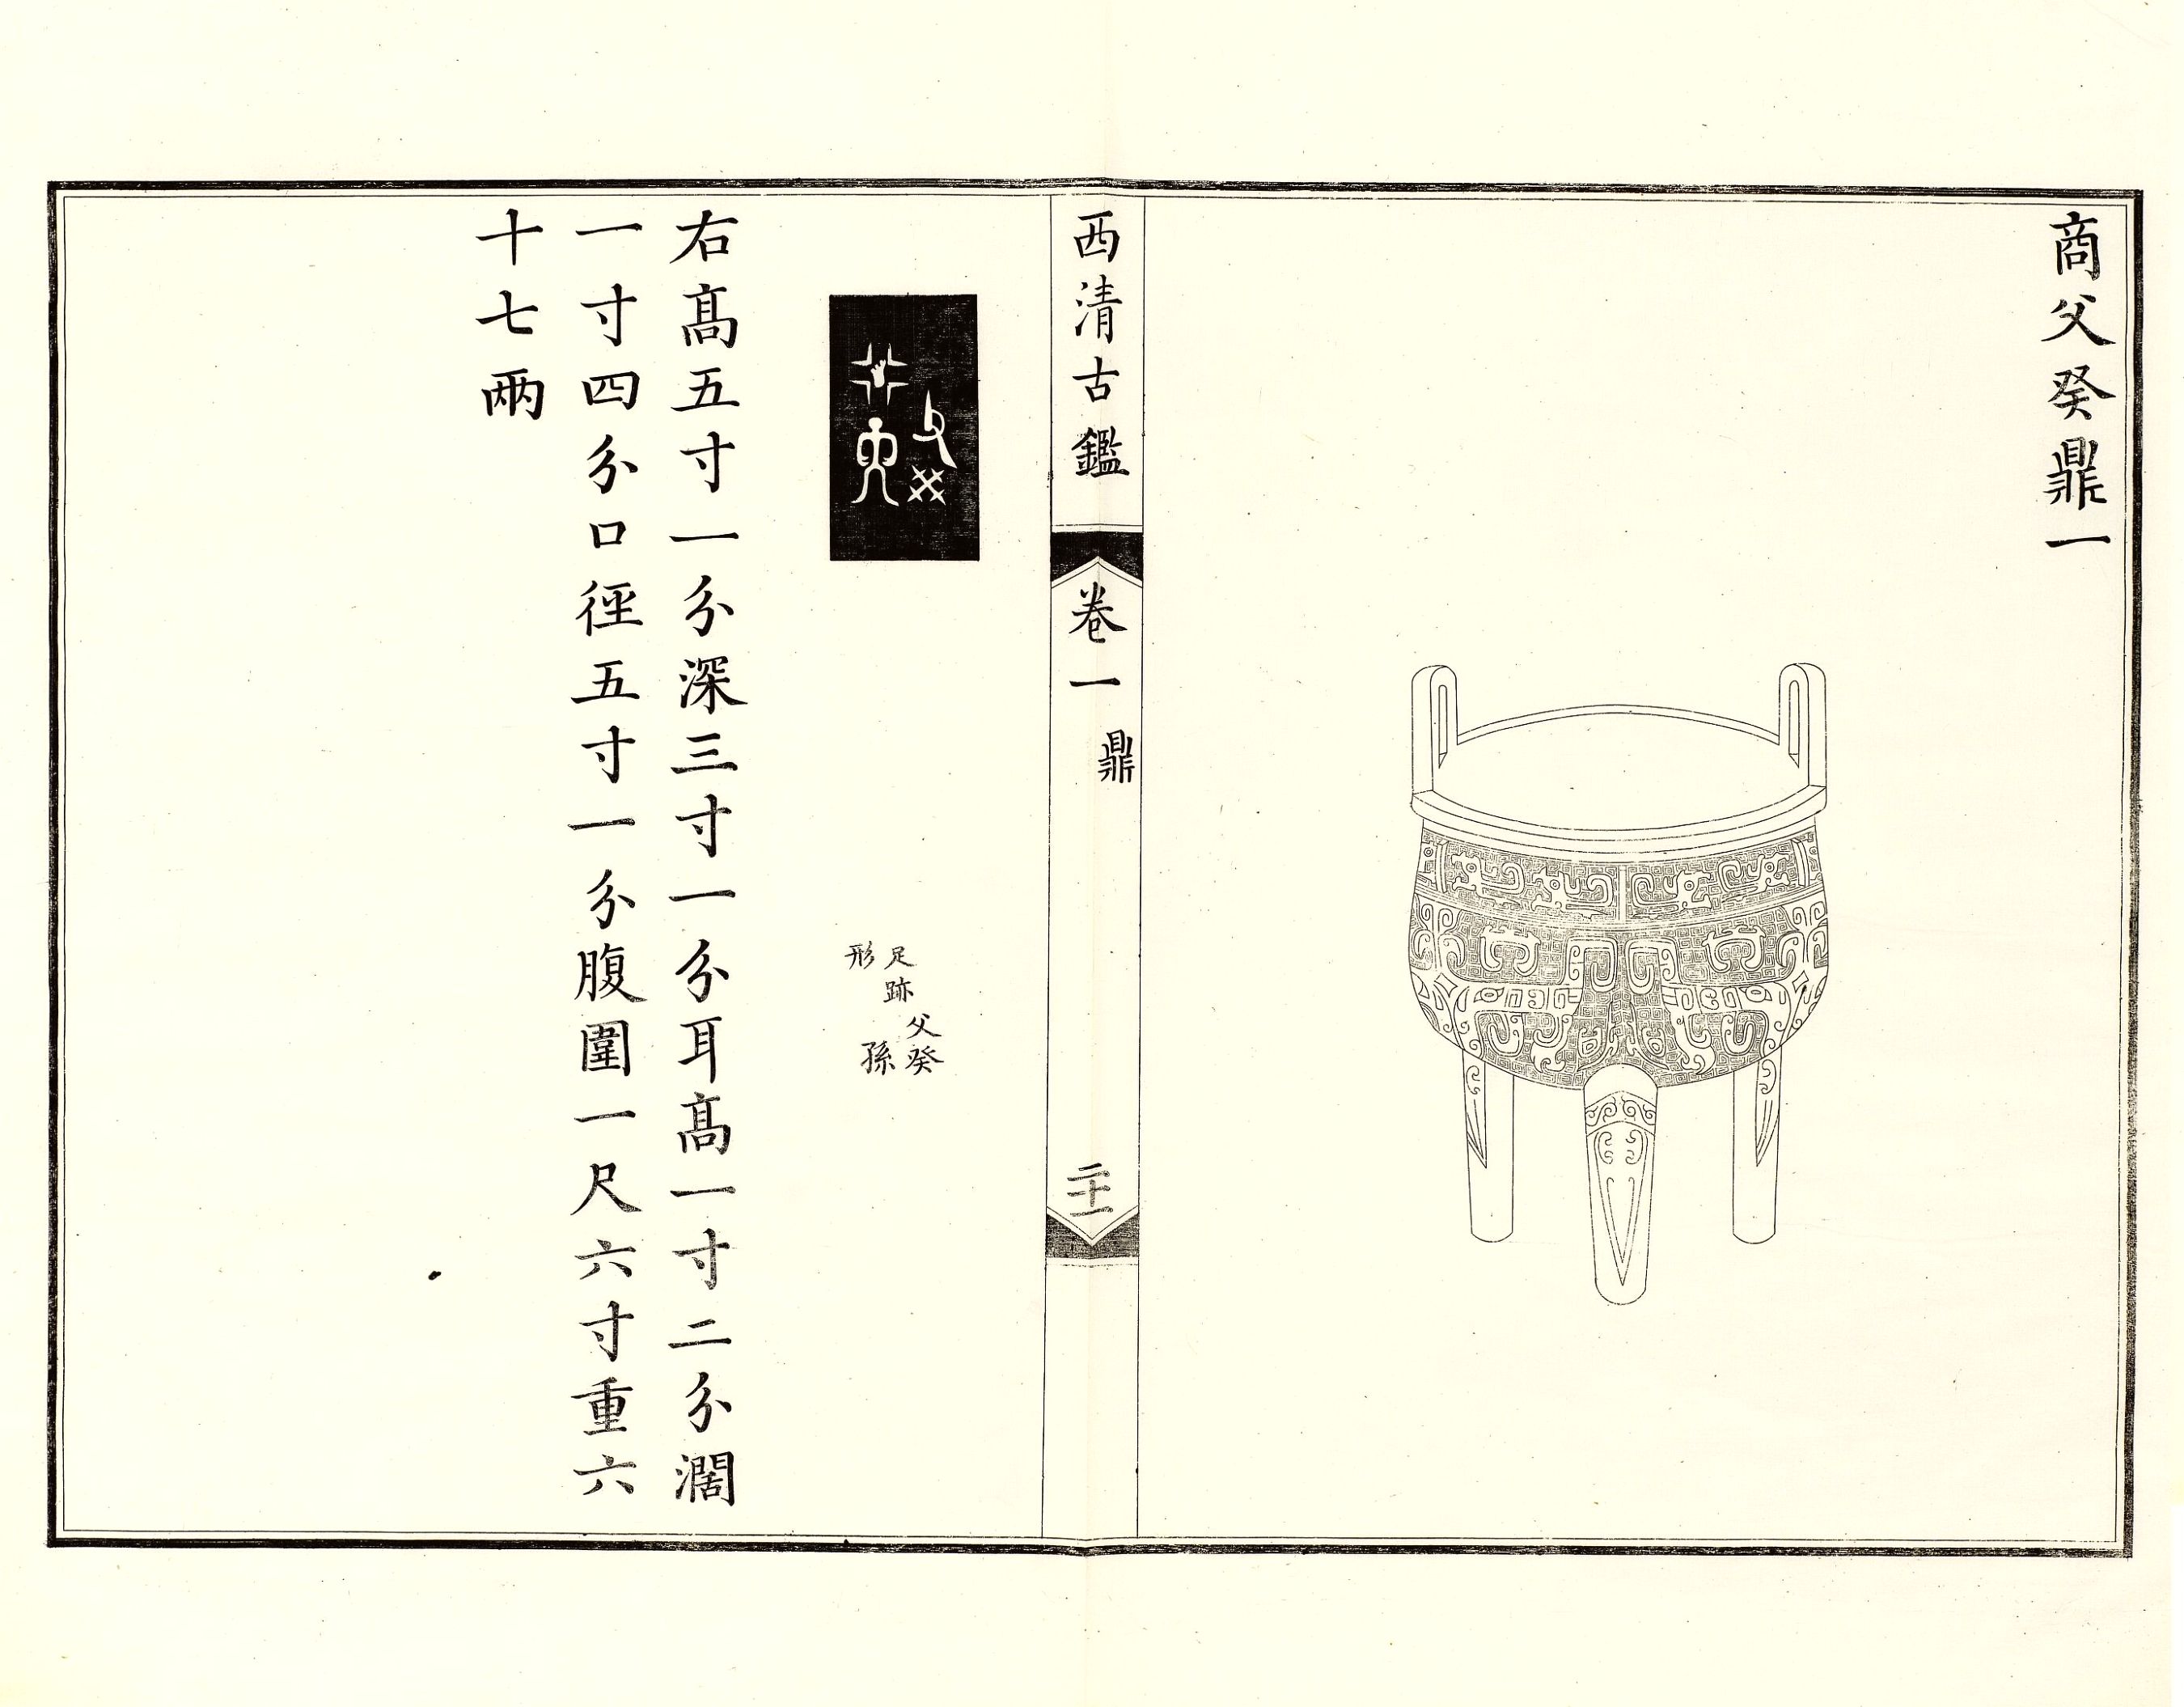 商父癸鼎一
西清古鑑 卷一 鼎 二十一
父癸
足跡
形
孫
右高五寸一分深三寸一分耳高一寸二分濶
一寸四分口徑五寸一分腹圍一尺六寸重六
十七兩